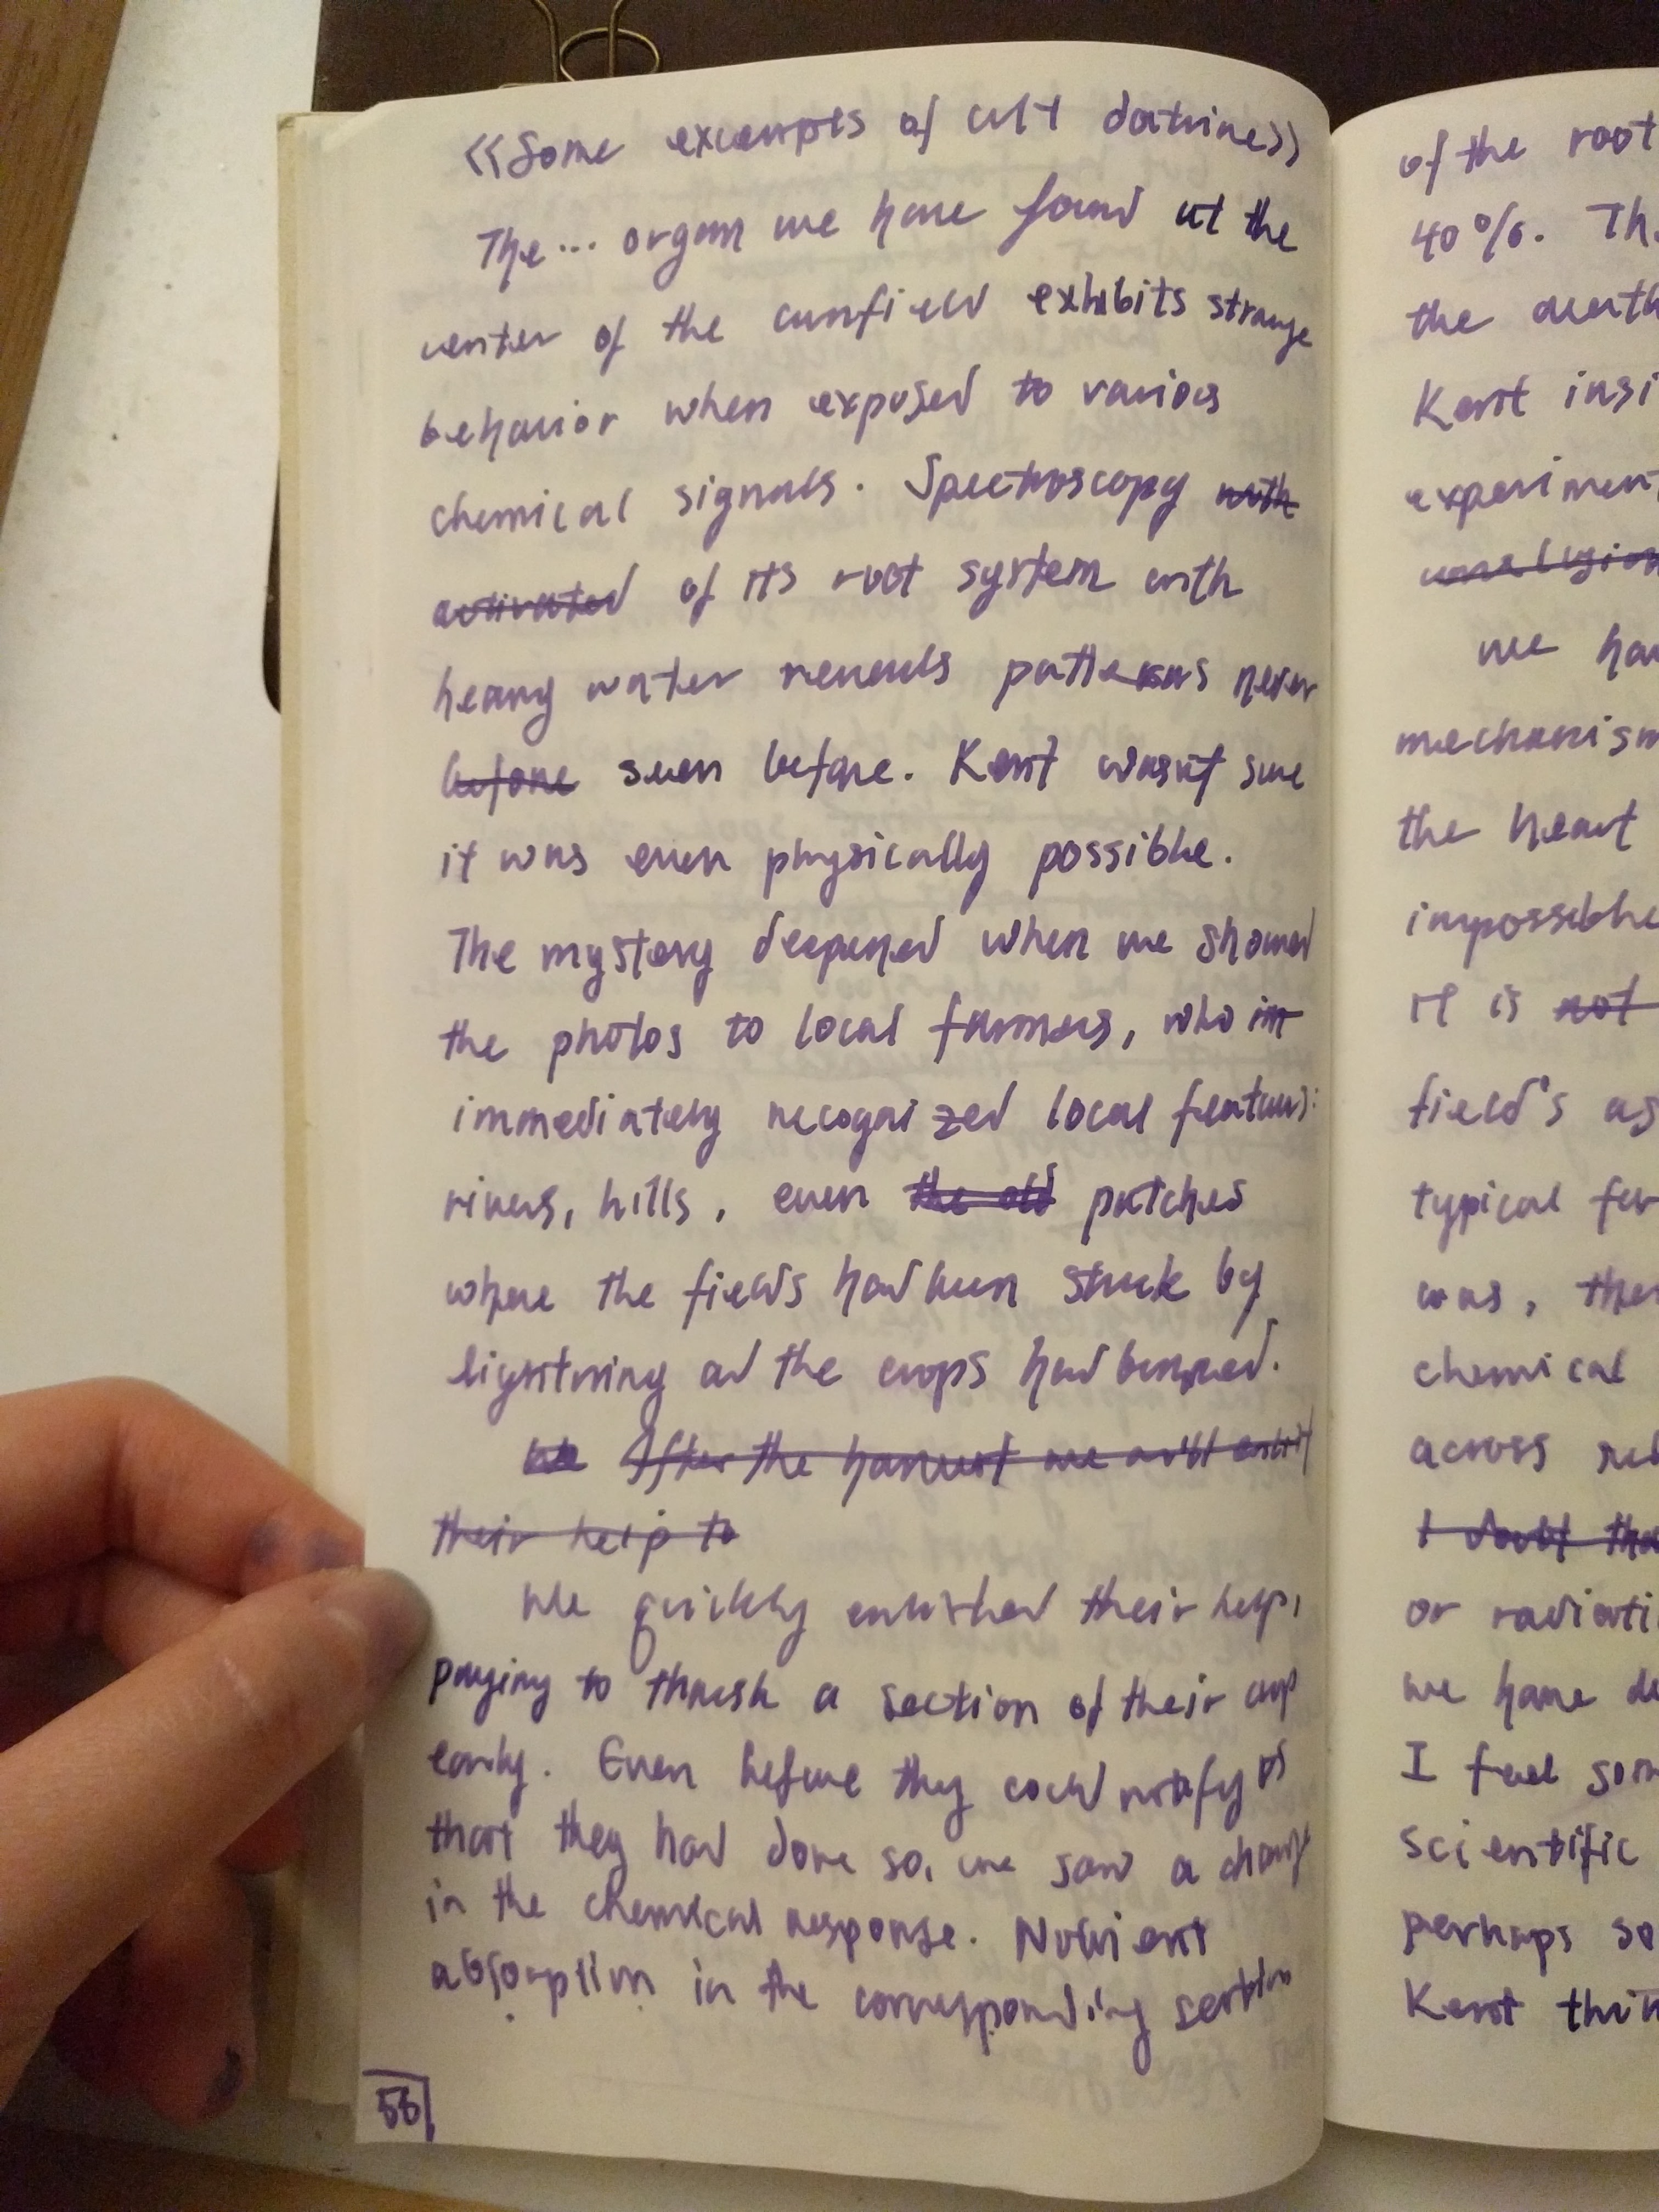 <<Some excerpts of cult doctrine>>
The... organ we have found at the
center of the cornfield exhibits strange
behavior when exposed to various
chemical signals. Spectroscopy with
activated of its root system with
heavy water reveals patterns never
before seen before. Kent wasn't sure
it was even physically possible.
The mystery deepened when we showed
the photos to local farmers, who im
immediately recognized local features:
rivers, hills, even the old patches
where the fields had been struck by
lightning and the crops had burned.
We After the harvest we will enlist
their help to
We quickly enlisted their help,
paying to thresh a section of their crop
early. Even before they could notify us
that they had done so, we saw a change
in the chemical response. Nutrient
absorption in the corresponding section
56
of the root
40%. Th
the death
Kent insi
experiment
we ha
mechanism
the heart
impossible
it is not
field's as
typical fer
was, ther
chemical
across rel
I doubt tha
or radiati
we have de
I feel som
scientific
perhaps so
Kent thin